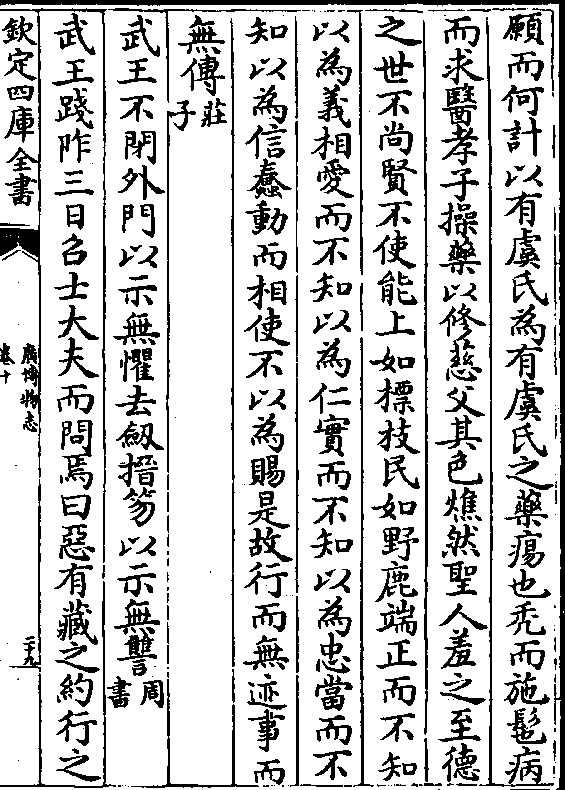 願而何計以有虞氏為有虞氏之藥瘍也禿而施髢病
而求醫孝子操藥以修慈父其色燋然聖人羞之至德
之世不尚賢不使能上如標枝民如野鹿端正而不知
以為義相愛而不知以為仁實而不知以為忠當而不
知以為信蠢動而相使不以為賜是故行而無迹事而
無傳莊子
武王不閉外門以示無懼去劔搢笏以示無讐周書
武王踐阼三日召士大夫而問焉曰惡有藏之約行之
欽定四庫全書
廣博物志
卷十
二十九